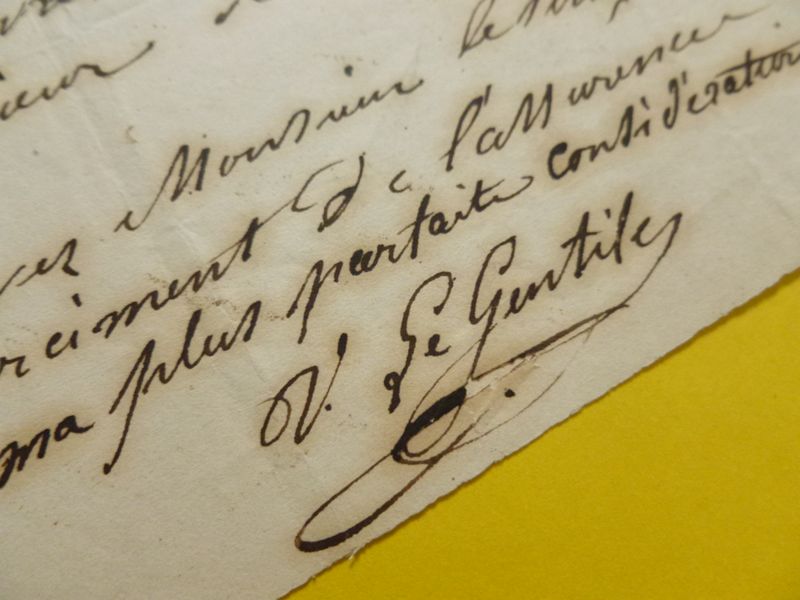 ieur
vez Monsieur le
rciment de l'assurence
ma plus parfaite considération
V. Le Gentile